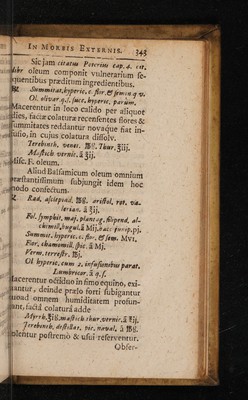 IN MORBIS EXTERNIS. 343
Sic jam citatus Petrius cap. 4. cit.
libr oleum componit vulnerarium se-
quentibus præditum ingredientibus.
Summitat. hyperic. c. flor. & semin. q v.
Ol. olivar. q. s. succ. hyperic. parum.
Macerentur in loco calido per aliquot
dies, facta colatura recensentes flores &
summitates reddantur novaque fiat in-
fusio, in cujus colatura dissolv.
Terebinth. venet. Thur. ʒiij.
Mastich vernic. ā ʒij.
Misc. F. oleum.
Aliud Balsamicum oleum omnium
præstantissimum subjungit idem hoc
modo confectum.
Rad. asclepiad. aristol. rot. va-
lerian. ā
Fol. symphit. maj. plant. filipend. al-
chimill. bugul. ā Mij. juniperi pj.
Summit. hyperic. c. flor. & sem. MVI.
Flor. chamomill. ā Mj.
Verm. terrestr.
Ol hyperic. cum 2. infusionibus parat.
Lumbricor. ā q. s.
Macerentur octiduo in fimo equino, exi-
mantur, deinde prælo forti subigantur
quoad omnem humiditatem profun-
dant, facta colatura adde
Myrrh. mastich thur. vernic. ā
Terebinth. destillat. pic. naval. ā
colentur postremo & usui reserventur.
Obser-